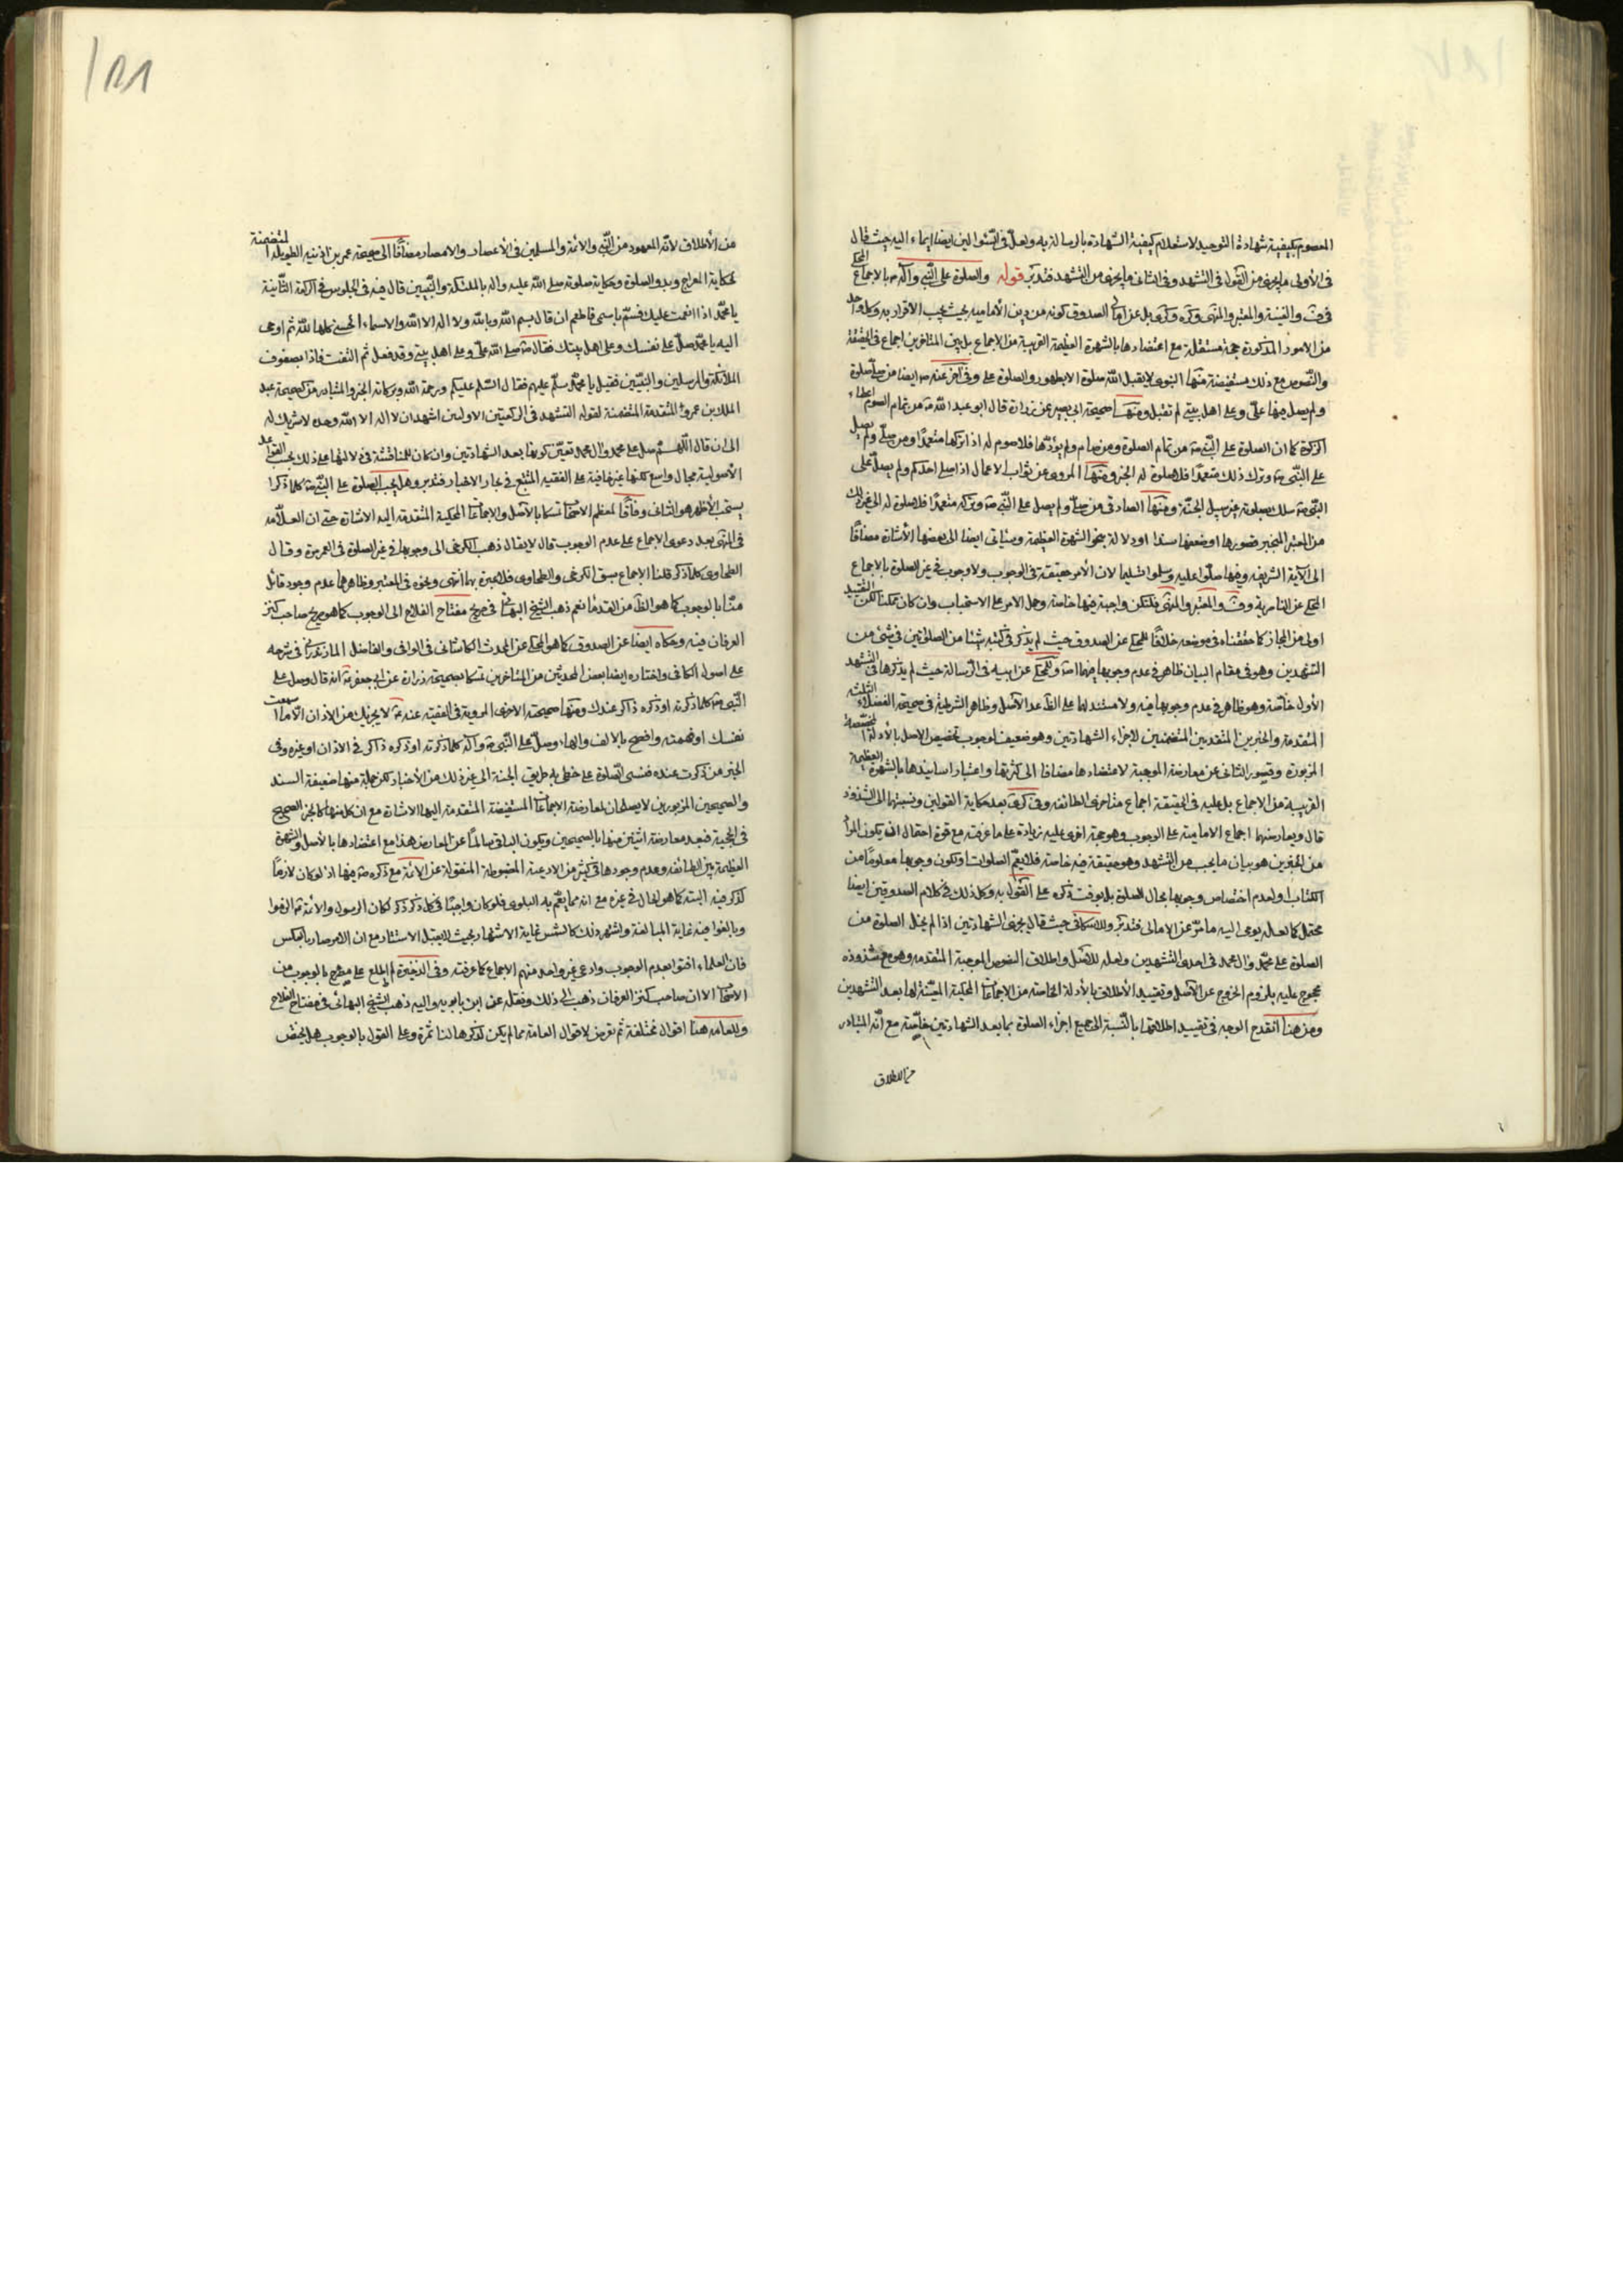 المعصوم بكيفية شهادة التوحيد لاستعلام كيفية الشهادة بالرسالة به ولعل في السؤالين ايضا ايماء اليه حيث قال
في الأولى ما يجزى من القول في التشهد وفي الثاني ما يجزى من التشهد فتدبر قوله والصلوة على النبي وآله ص بالاجماع المحكى
في والغنية والمعتبر والمنتهى وكره وكرى بل عن امالى الصدوق كونه من دين الأمامية بحيث يجب الاقرار به وكل واحد
من الامور المذكورة حجة مستقلة مع اعتضادها بالشهرة العظيمة القريبة من الاجماع بل بين المتاخرين اجماع في الحقيقة
والنصوص مع ذلك مستفيضة منها النبوى لا يقبل الله صلوة الا بطهور والصلوة على وفي آخر عنه ص ايضا من صلى صلوة
ولم يصل فيها علىّ وعلى اهل بيتى لم تقبل ومنها صحيحة ابى بصير عن زرارة قال ابو عبد الله ع من تمام الصوم اعطاء
الزكوة كما ان الصلوة على النبي ص من تمام الصلوة ومن صام ولم يؤدها فلا صوم له اذا تركها متعمدا ومن صلى ولم يصل
على النبي ص وترك ذلك متعمدا فلا صلوة له الخبر ومنها المروى عن ثواب الاعمال اذا صلى احدكم ولم يصل على
النبي ص سلك بصلوته غير سبيل الجنة ومنها الصادقى من صلى ولم يصل على النبي ص وتركه متعمدا فلا صلوة له الى غير ذلك
من المعتبر المنجبر قصورها او ضعفها سندا او دلالة بنحو الشهرة العظيمة وسياتى ايضا الى بعضها الأشارة مضافا
الى الآية الشريفة وفيها صلوا عليه وسلموا تسليما لان الأمر حقيقة في الوجوب ولا وجوب في غير الصلوة بالاجماع
المحكى عن الناصرية و والمعتبر والمنتهى فلتكن واجبة فيها خاصة وحمل الامر على الاستحباب وان كان ممكنا لكن التقييد
اولى من المجاز كما حققناه في موضعه خلافا للمحكى عن الصدوق حيث لم يذكر في كتبه شيئا من الصلوتين في شئ من
التشهدين وهو في مقام البيان ظاهر في عدم وجوبها فيهما وللمحكى عن ابيه في الرسالة حيث لم يذكرها في التشهد
الأول خاصة وهو ظاهر في عدم وجوبها فيه ولا مستند لهما على الظ عدا الأصل وظاهر الشرطية في صحيحة الفضلاء الثلثة
المتقدمة والخبرين المتقدمين المتضمنين لاجزاء الشهادتين وهو ضعيف لوجوب تخصيص الاصل بالأدلة المخصصة
المزبورة وقصور الثانى عن معارضة الموجبة لاعتضادها مضافا الى كثرتها واعتبار اسانيدها بالشهرة العظيمة
القريبة من الاجماع بل عليه في الحقيقة اجماع متاخرى الطائفة وفي كرى بعد حكاية القولين ونسبتهما الى الشذوذ
قال ويعارضهما اجماع الامامية على الوجوب وهو حجة اخرى عليه زيادة على ما عرفته مع قوة احتمال ان يكون المراد
من الخبرين هو بيان ما يجب من التشهد وهو حقيقة فيه خاصة فلا يعم الصلوات او تكون وجوبها معلوما من
الكتاب او لعدم اختصاص وجوبها بحال الصلوة بل بوقت ذكره على القول به وكل ذلك في كلام الصدوقين ايضا
محتمل كما لعله يومى اليه ما مرّ عن الامالى فتدبر وللاسكافى حيث قال يجزى الشهادتين اذا لم يخل الصلوة من
الصلوة على محمد وال محمد في احدى التشهدين ولعله للأصل واطلاق النصوص الموجبة المتقدمة وهو مع شذوذه
محجوج عليه بلزوم الخروج عن الأصل وتقييد الأطلاق بالأدلة الخاصة من الاجماعات المحكية المعينة لها بعد التشهدين
ومن هنا انقدح الوجه في تقييد اطلاقها بالنسبة الى جميع اجزاء الصلوة بما بعد الشهادتين خاصة مع انه المتبادر
من الاطلاق
من الأطلاق لأنه المعهود من النبي والائمة والمسلمين في الأعصار والامصار مضافا الى صحيحة عمر بن اذينه الطويلة المتضمنة
لحكاية المعراج وبدو الصلوة وحكاية صلوته صلى الله عليه واله بالملئكة والنبيين قال فيه في الجلوس في الركعة الثانية
يا محمد اذا انعمت عليك فسم باسمى فالهم ان قال بسم الله وبالله ولا اله الا الله والاسماء الحسنى كلها لله ثم اوحى
اليه يا محمد صل على نفسك وعلى اهل بيتك فقال ص صلى الله علىّ وعلى اهل بيتى وقد فعل ثم التفت فاذا بصفوف
الملائكة والمرسلين والنبيين فقيل يا محمد سلم عليهم فقال السلم عليكم ورحمة الله وبركاته الخبر والمتبادر من صحيحة عبد
الملك بن عمرو المتقدمة المتضمنة لقوله التشهد في الركعتين الاولين اشهد ان لا اله الا الله وحده لا شريك له
الى ان قال اللهم صل على محمد وال محمد تعين كونها بعد الشهادتين وان كان للمناقشة في دلالتها على ذلك بحسب القواعد
الأصولية مجال واسع لكنها غير خافية على الفقيه المتتبع في بحار الاخبار فتدبر وهل يجب الصلوة على النبي ص كلما ذكر ا
يستحب الأظهر هو الثانى وفاقا لمعظم الاصحاب تمسكا بالأصل والاجماعات المحكية المتقدمة اليه الاشارة حتى ان العلامة
في المنتهى بعد دعوى الاجماع على عدم الوجوب قال لا يقال ذهب الكرخى الى وجوبها في غير الصلوة في العمر مرة وقال
الطحاوى كلما ذكر قلنا الاجماع سبق الكرخى والطحاوى فلا عبرة بهما انتهى ونحوه في المعتبر وظاهرهما عدم وجود قائل
منا بالوجوب كما هو الظ من القدماء نعم ذهب الشيخ البهائى في صريح مفتاح الفلاح الى الوجوب كما هو صريح صاحب كنز
العرفان فيه وحكاه ايضا عن الصدوق كما هو المحكى عن المحدث الكاشانى في الوافى والفاضل المازندرانى في شرحه
على اصول الكافى واختاره ايضا بعض المحدثين من المتاخرين تمسكا بصحيحة زرارة عن ابى جعفر ع انه قال وصل على
النبي ص كلما ذكرته او ذكره ذاكر عندك ومنها صحيحته الاخرى المروية في الفقيه عنه ع لا يجزيك من الاذان الا ما اسمعت
نفسك او فهمته وافصح بالالف والهاء وصلّ على النبي ص وآله كلما ذكرته او ذكره ذاكر في الاذان او غيره وفى
الخبر من ذكرت عنده فنسى الصلوة على خطى به طريق الجنة الى غير ذلك من الأخبار لكن جملة منها ضعيفة السند
والصحيحين المزبورين لا يصلحان لمعارضة الاجماعات المستفيضة المتقدمة اليها الاشارة مع ان كل منها كالخبر الصحيح
في الحجية فبعد معارضة اثنين منها بالصحيحين ويكون الباقى سالما عن المعارضه هذا مع اعتضادها بالأصل والشهرة
العظيمة بين الطائفة وعدم وجودها في كثير من الادعية المضبوطة المنقولة عن الأئمة مع ذكره ص فيها اذ لو كان لازما
لذكر فيه البتة كما هو الحال في غيره مع انه مما يعم به البلوى فلو كان واجبا في كل ذكر ذكر لكان الرسول والأئمة ع الزموا
وبالغوا فيه غاية المبالغة واشتهر ذلك كالشمس غاية الاشتهار بحيث لا يقبل الاستتار مع ان الامر صار بالعكس
فان العلماء افتوا بعدم الوجوب وادعى غير واحد منهم الاجماع كما عرفته وفى الذخيرة لم اطلع على مصرح بالوجوب من
الاصحاب الا ان صاحب كنز العرفان ذهب الى ذلك ونقله عن ابن بابويه واليه ذهب الشيخ البهائى في مفتاح الفلاح
وللعامه هنا اقوال مختلفة ثم تعرض لاقوال العامة مما لم يكن لذكرها لنا ثمره وعلى القول بالوجوب هل يختص